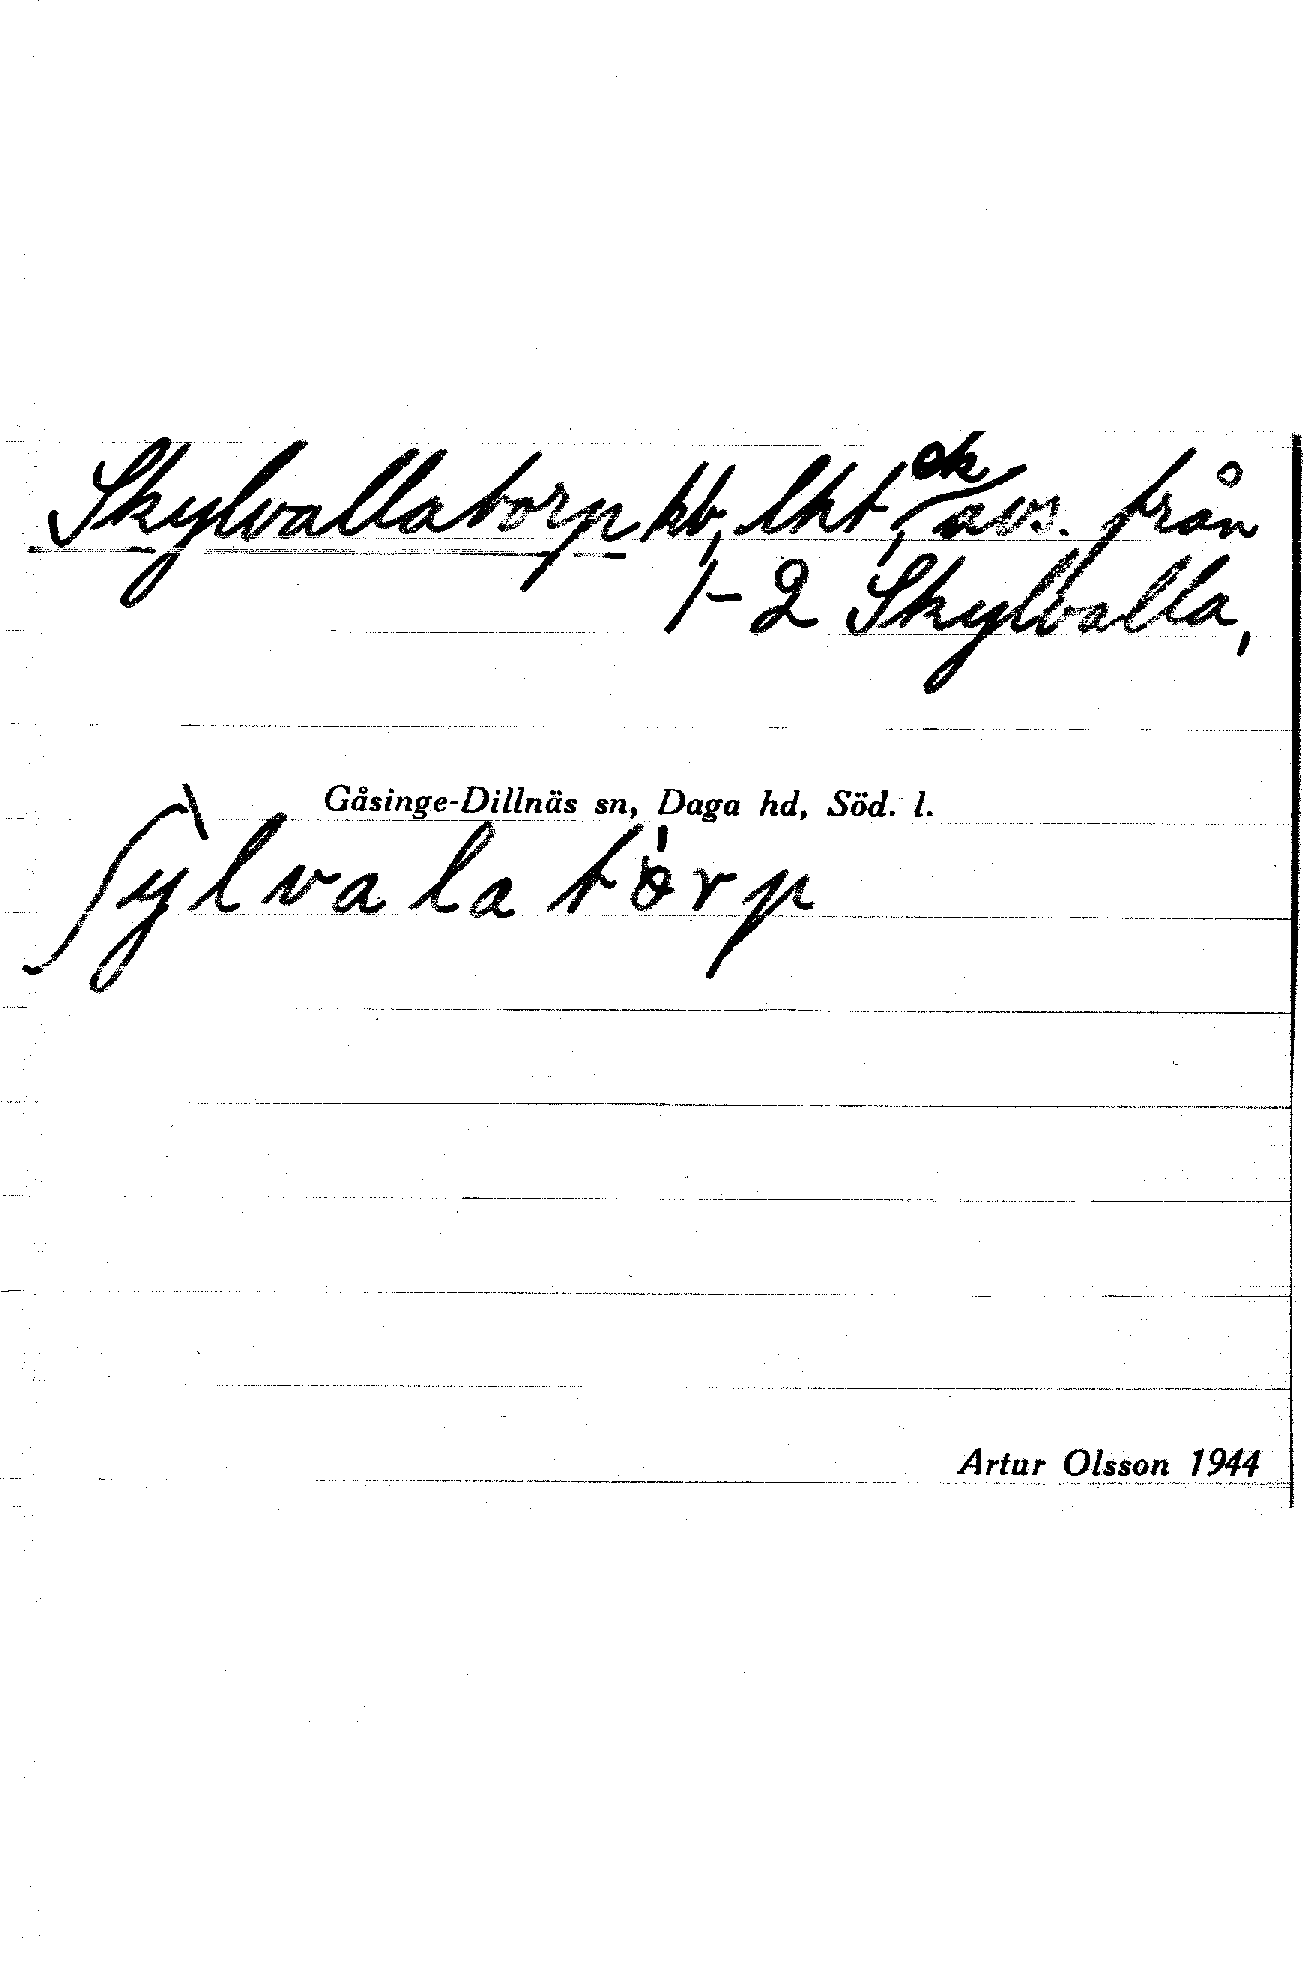 Skylvallatorp hb, lht, ek avs. från
1-2 Skylvalla,
Gåsinge-Dillnäs sn, Daga hd, Söd. l.
ʃylvala törp
Artur Olsson 1944